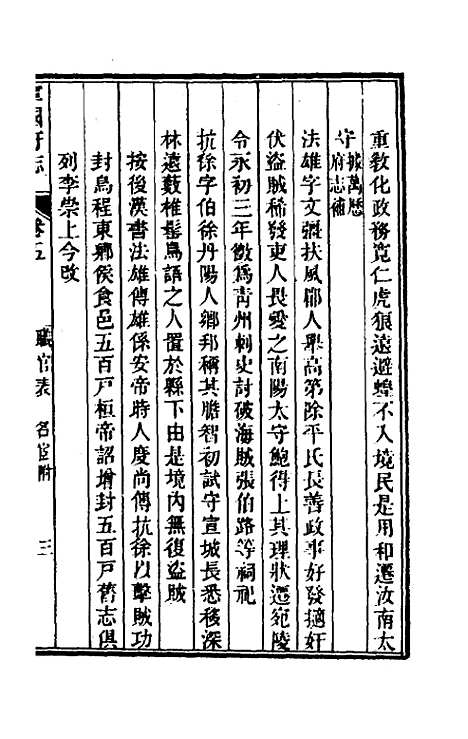 重敎化政務寛仁虎狼遠避蝗不入境民是用和遷汝南太
守據萬歷府志補
法雄字文彊扶風郿人舉高第除平氏長善政事好發擿奸
伏盜賊稀發吏人畏愛之南陽太守鮑得上其理狀遷宛陵
令永初三年徵爲青州刺史討破海賊張伯路等祠祀
抗徐字伯徐丹陽人鄉邦稱其膽智初試守宣城長悉移深
林遠藪椎髻鳥語之人置於縣下由是境內無復盜賊
按後漢書法雄傳雄係安帝時人度尚傳抗徐以擊賊功
封烏程東鄉侯食邑五百戸桓帝詔增封五百戸舊志俱
列李崇上今改
寧國府志
卷五
職官表
名宦附
三